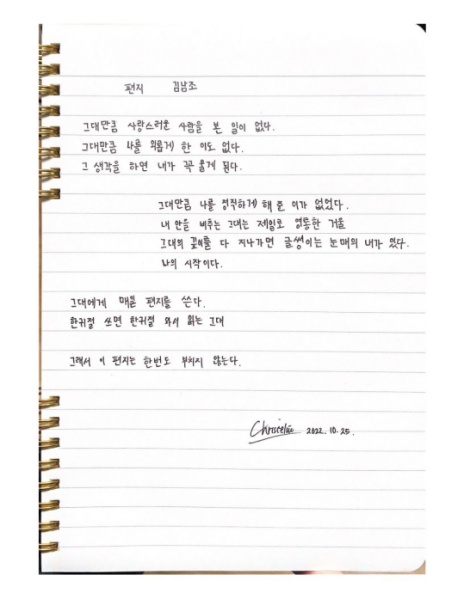 편지 김남조
그대만큼 사랑스러운 사람을 본 일이 없다.
그대만큼 나를 외롭게 한 이도 없다.
그 생각을 하면 내가 꼭 울게 된다.
그대만큼 나를 정직하게 해 준 이가 없었다.
내 안을 비추는 그대는 제일로 영롱한 거울
그대의 깊이를 다 지나가면 글썽이는 눈매의 내가 있다.
나의 시작이다.
그대에게 매일 편지를 쓴다.
한귀절 쓰면 한귀절 와서 읽는 그대
그래서 이 편지는 한번도 부치지 않는다.
2022. 10. 25.